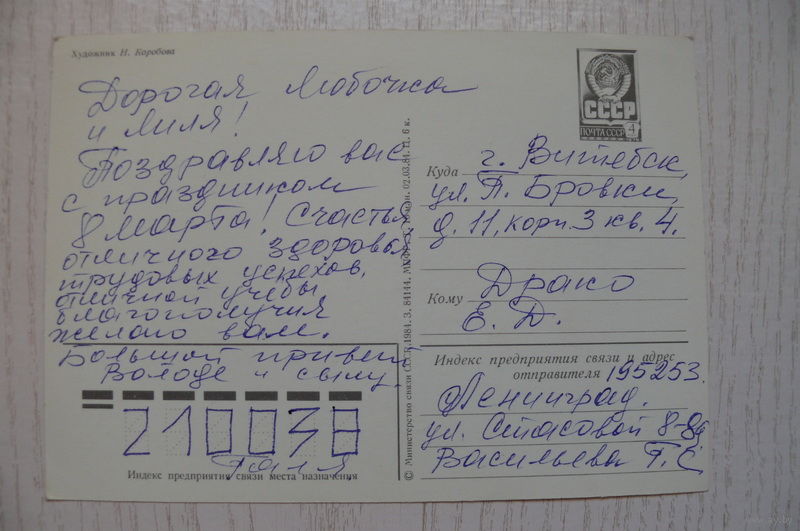 Художник Н. Коробова
Дорогая Любочка
и Миля!
Поздравляю вас
с праздником
8 Марта! Счастья
отличного здоровья
трудовых успехов,
отличной учёбы
благополучия
желаю вам.
Большой привет
Володе и сыну.
210038
Галя
Индекс предприятия связи места назначения
© Министерство связи СССР, 1984. З. 84144.
02.03.84. Ц. 6 к.
СССР
ПОЧТА СССР 4
Куда г. Витебск,
ул. П. Бровки,
д. 11, корп. 3 кв. 4.
Кому Драко
Е. Д.
Индекс предприятия связи и адрес
отправителя 195253.
Ленинград.
ул. Стасовой 8-
Васильева Г. С